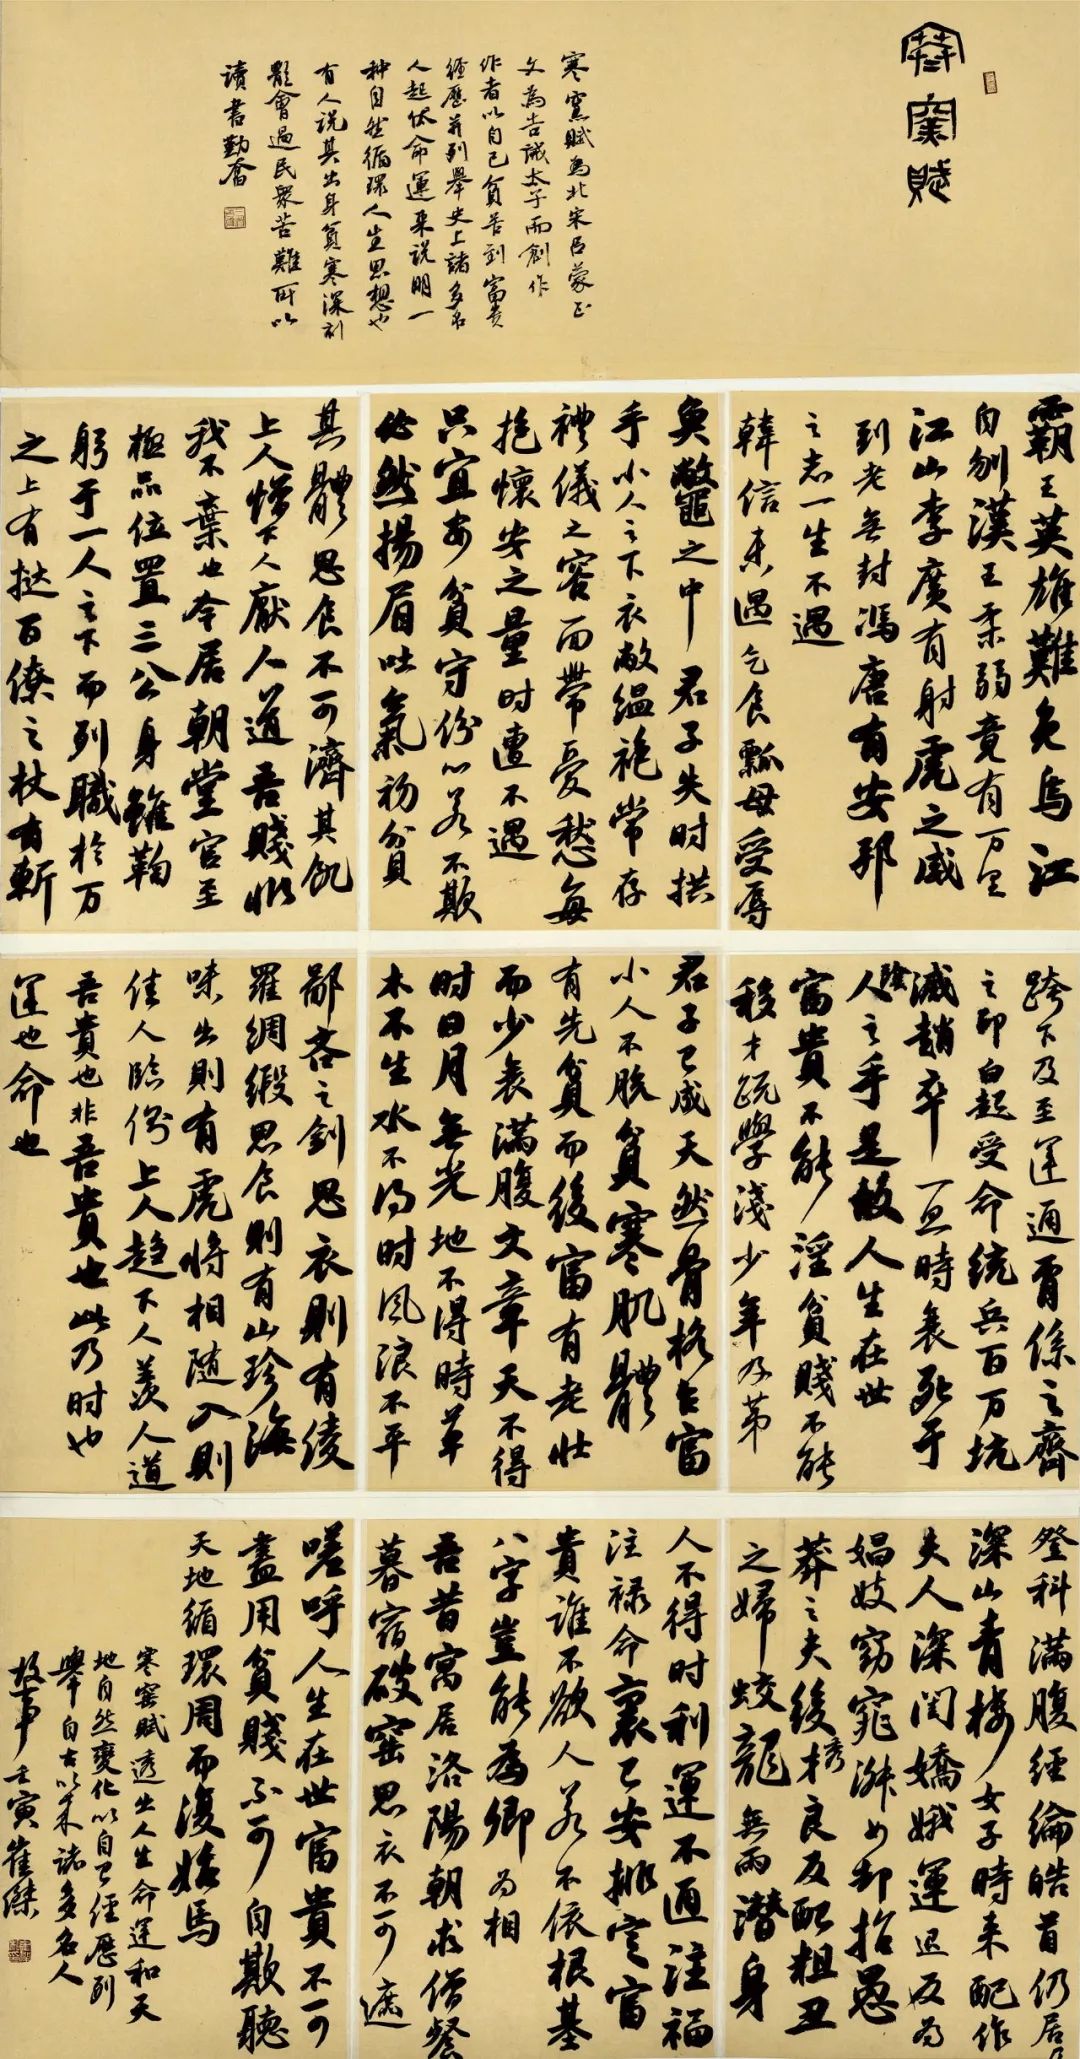 寒窯賦
寒窯賦為北宋呂蒙正
文為告誡太子而創作
作者以自己貧苦到富貴
經歷并列舉史上諸多名
人起伏命運来説明一
种自然循環人生思想也
有人説其出身貧寒深刻
體會過民衆苦難所以
讀書勤奮
霸王英雄難免烏江
自刎漢王柔弱竟有万里
江山李廣有射虎之威
到老無封馮唐有安邦
之志一生不遇
韓信未遇乞食瓢母受辱
跨下及至運通胃係之齊
之印白起受命統兵百万坑
滅趙卒一旦時衰死于
陰人之手是故人生在世
富貴不能淫貧賤不能
移才疏學淺少年及第
登科滿腹經綸皓首仍居
深山青樓女子時来配作
夫人深閨嬌娥運退反為
娼妓窈窕淑女却招愚
莽之夫後秀良反配粗丑
之婦蛟龍無雨潛身
魚鱉之中君子失时拱
手小人之下衣敝缊袍常存
禮儀之容面帶憂愁每
抱懷安之量时遭不遇
只宜安貧守份心若不欺
必然揚眉吐氣初貧
君子已成天然骨格乍富
小人不脱貧寒肌體
有先貧而後富有老壯
而少衰滿腹文章天不得
时日月無光地不得時草
木不生水不得时風浪不平
人不得时利運不通注福
注禄命裏已安排定富
貴誰不欲人若不依根基
八字豈能為卿为相
吾昔寓居洛陽朝求僧餐
暮宿破窑思衣不可遮
其體思食不可濟其飢
上人憎下人厭人道吾賤非
我不棄也今居朝堂官至
極品位置三公身雖鞠
躬于一人之下而列職於万
之上有撻百僚之杖有斬
鄙吝之劍思衣則有綾
羅綢緞思食則有山珍海
味出則有虎将相随入則
佳人臨側上人趋下人羡人道
吾貴也非吾貴也此乃时也
運也命也
嗟呼人生在世富貴不可
盡用貧賤不可自欺聽
天地循環周而復始焉
寒窑賦透出人生命運和天
地自然變化以自己經歷列
舉自古以来諸多名人
故事壬寅崔傑